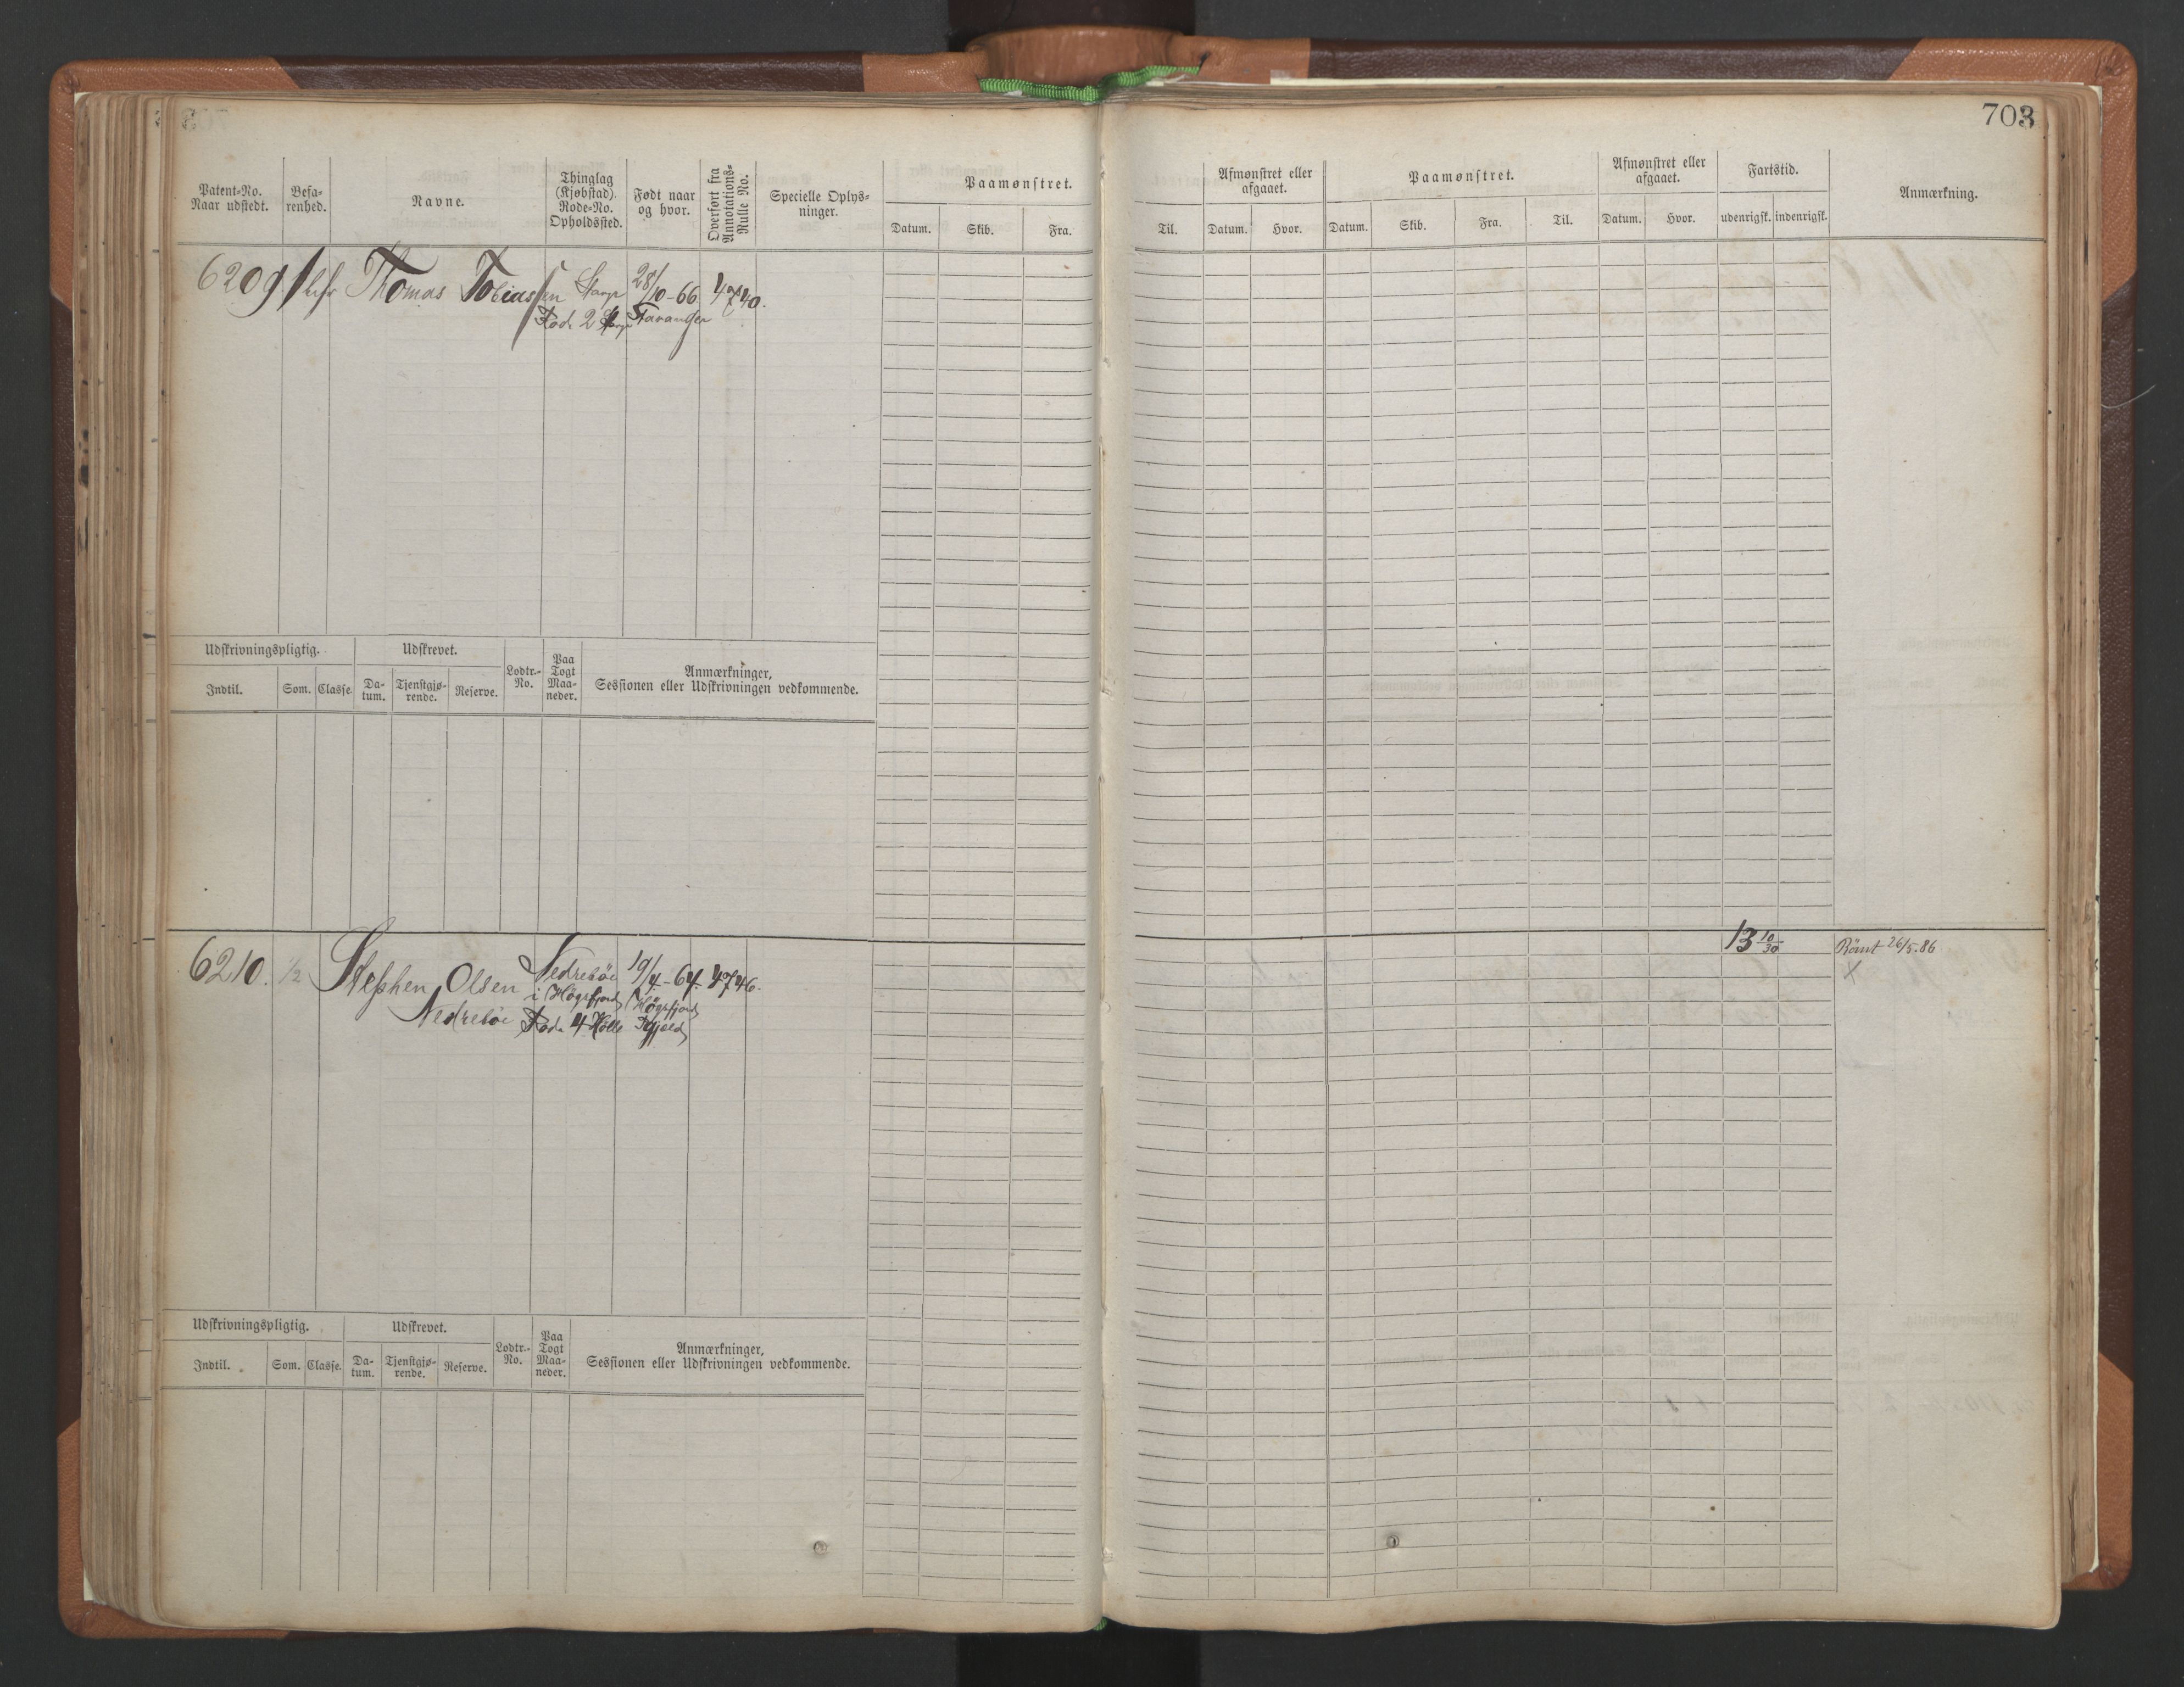 703
Patent-No.
Naar udstedt.
Befa-
renhed.
Navne.
Thinglag
(Kjøbstad).
Rode-No.
Opholdssted.
Født naar
og hvor.
Overført fra
Annotations-
Rulle No.
Specielle Oplys-
ninger.
Paamønstret.
Datum.
Skib.
Fra.
Til.
Afmønstret eller
afgaaet.
Datum.
Hvor.
Paamønstret.
Datum.
Skib.
Fra.
Til.
Afmønstret eller
afgaaet.
Datum.
Hvor.
Fartstid.
udenrigsk.
indenrigsk.
Anmærkning.
6209 Thomas Tobiassen 28/10-66 4740.
Rode 2 Stavanger
Udskrivningspligtig.
Indtil.
Som.
Classe.
Udskrevet.
Da-
tum.
Tjenstgjø-
rende.
Reserve.
Lodtr.-
No.
Paa
Togt
Maa-
neder.
Anmærkninger,
Sessionen eller Udskrivningen vedkommende.
6210. 1/2 Stephen Olsen Nedrebøe 19/4-64 4746.
i Høgsfjord Høgsfjord
Nedrebøe Rode 4 Holle
13 10/30
Römt 26/5.86
X
Udskrivningspligtig.
Indtil.
Som.
Classe.
Udskrevet.
Da-
tum.
Tjenstgjø-
rende.
Reserve.
Lodtr.-
No.
Paa
Togt
Maa-
neder.
Anmærkninger,
Sessionen eller Udskrivningen vedkommende.